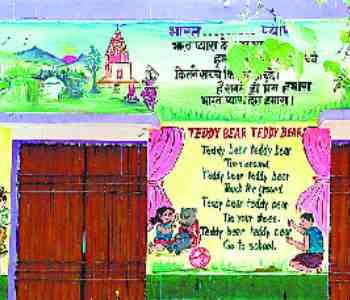 भारत .......... प्या
भारत प्यारा दे
ह
कितने अच्छे कि
है सबसे ही प्रिय हमारा
भारत प्यारा देश हमारा।
TEDDY BEAR TEDDY BEAR
Teddy bear teddy bear
Turn around
Teddy bear teddy bear
Touch the ground
Teddy bear teddy bear
Tie your shoes.
Teddy bear teddy bear
Go to school.